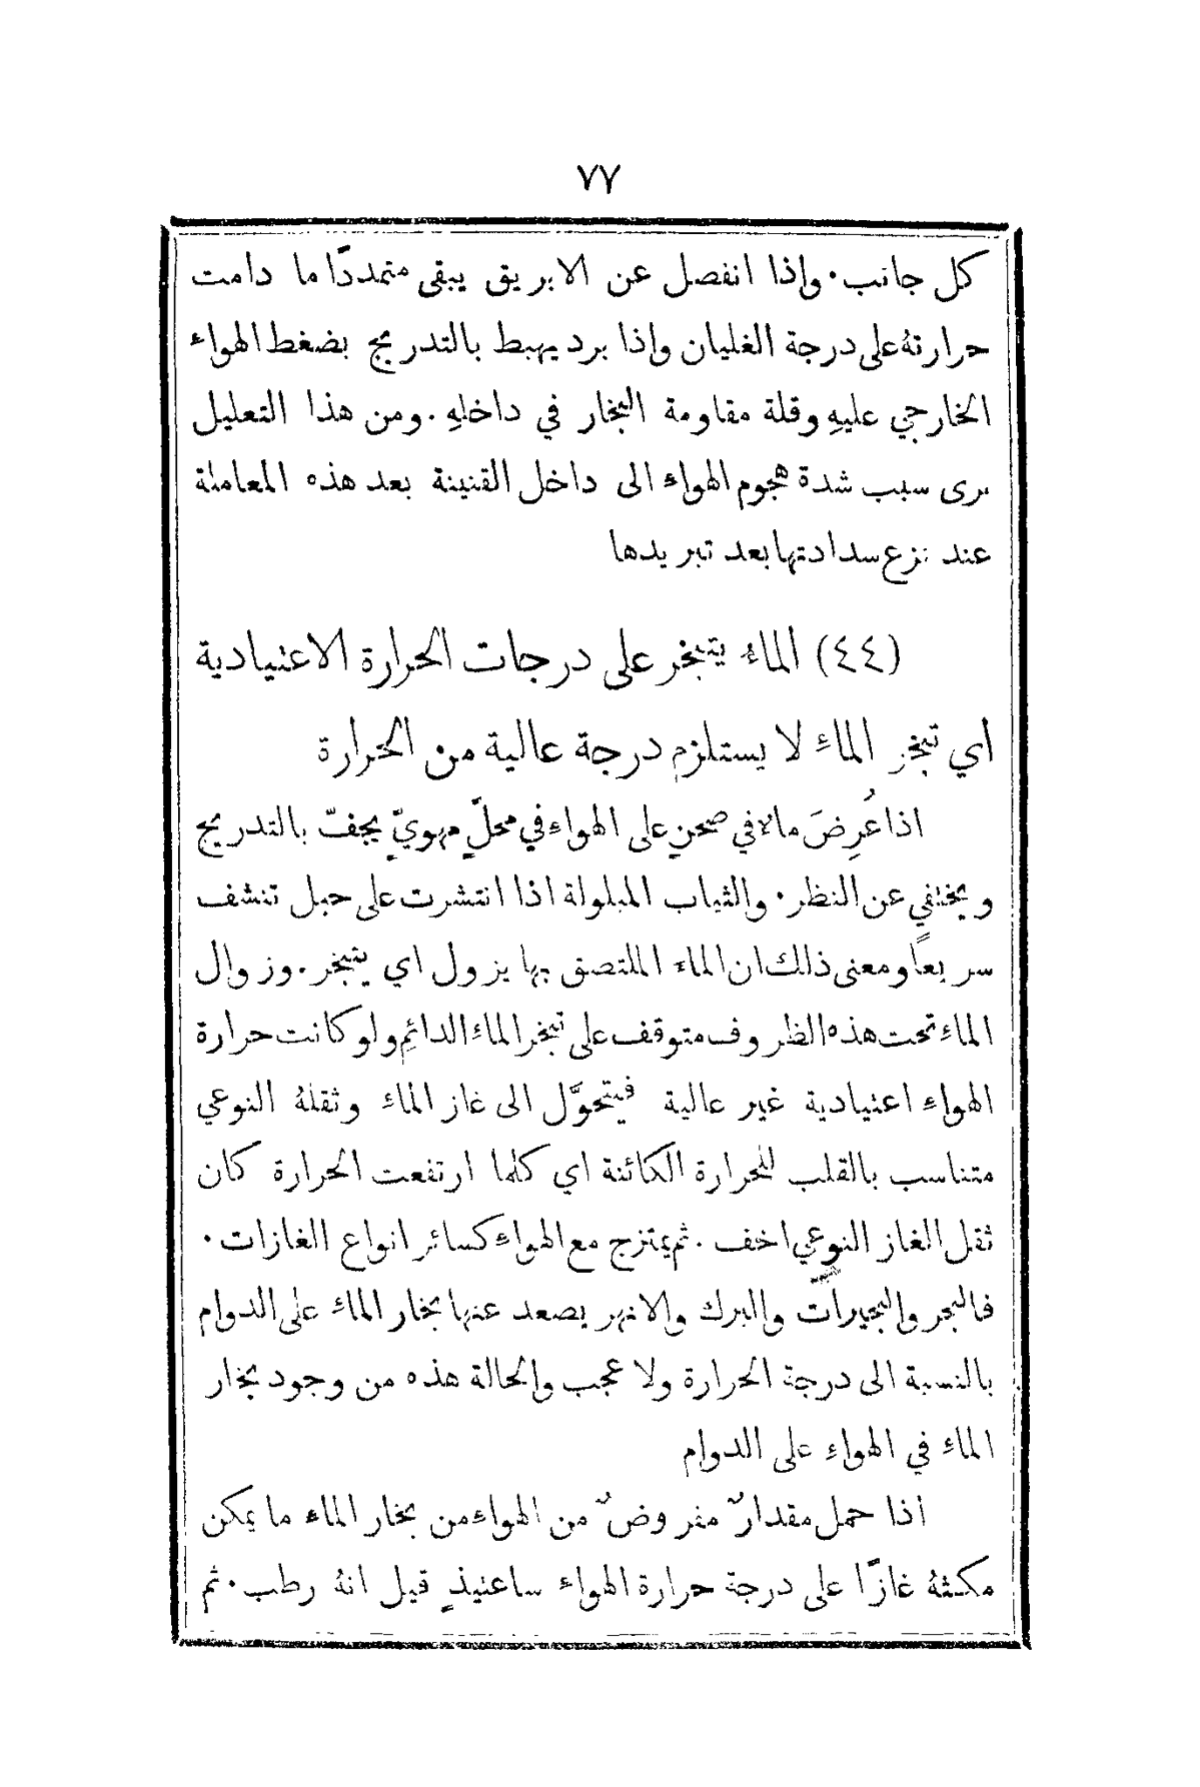 ٧٧
كل جانب. واذا انفصل عن الابريق يبقى متمددًا ما دامت
حرارتهُ على درجة الغليان واذا برد يهبط بالتدريج بضغط الهواء
الخارجي عليهِ وقلة مقاومة البخار في داخلهِ. ومن هذا التعليل
يرى سبب شدة هجوم الهواء الى داخل القنينة بعد هذه المعاملة
عند نزع سدادتها بعد تبريدها
(٤٤) الماءُ يتبخر على درجات الحرارة الاعتيادية
اي تبخر الماءِ لا يستلزم درجة عالية من الحرارة
اذا عُرِضَ ماء في صحنٍ على الهواء في محلٍّ مهويٍّ يجفّ بالتدريج
ويختفي عن النظر. والثياب المبلولة اذا انتشرت على حبل تنشف
سريعًا ومعنى ذلك ان الماء الملتصق بها يزول اي يتبخر. وزوال
الماء تحت هذه الظروف متوقف على تبخر الماء الدائمِ ولو كانت حرارة
الهواءِ اعتيادية غير عالية فيتحوَّل الى غاز الماءِ وثقلهُ النوعي
متناسب بالقلب للحرارة الكائنة اي كلما ارتفعت الحرارة كان
ثقل الغاز النوعي اخف. ثم يمتزج مع الهواء كسائر انواع الغازات.
فالبحر والبحيرات والبرك والانهر يصعد عنها بخار الماءِ على الدوام
بالنسبة الى درجة الحرارة ولا عجب والحالة هذه من وجود بخار
الماءِ في الهواءِ على الدوام
اذا حمل مقدارٌ مفروضٌ من الهواء من بخار الماء ما يمكن
مكثهُ غازًا على درجة حرارة الهواءِ ساعتيذٍ قيل انهُ رطب. ثم